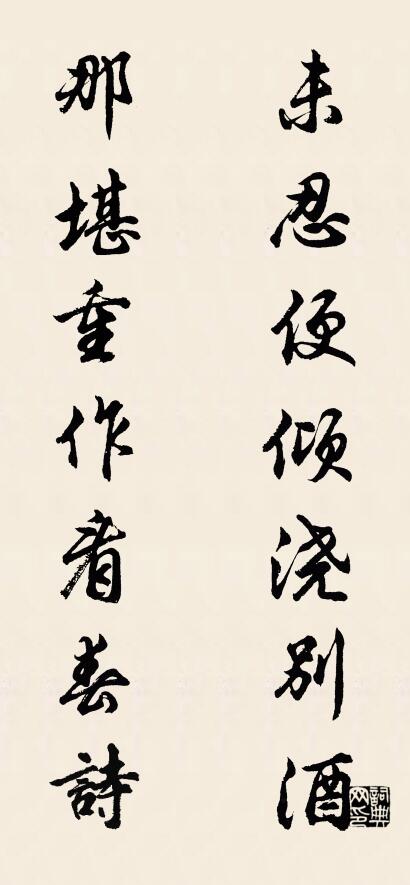 未忍便倾浇别酒
那堪重作看春詩
詞典网印